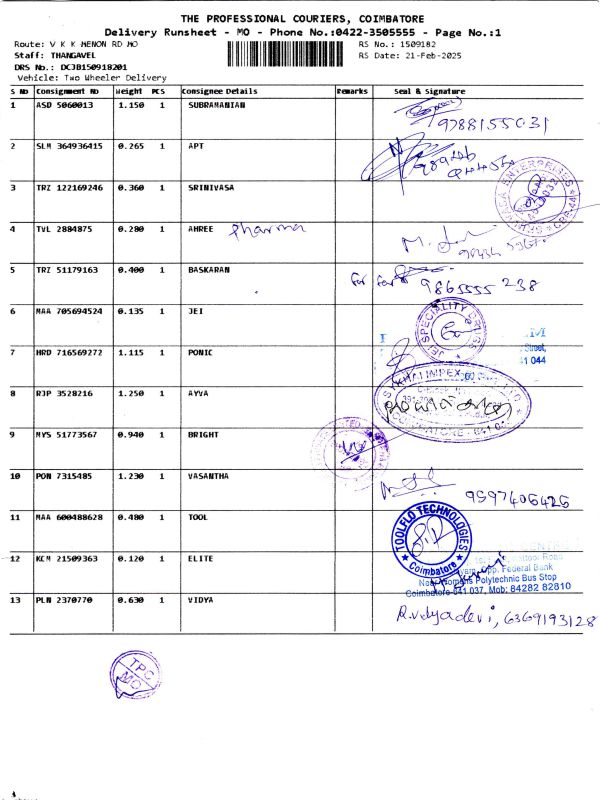 THE PROFESSIONAL COURIERS, COIMBATORE
Delivery Runsheet - MO - Phone No.:0422-3505555 - Page No.:1
Route: V K K MENON RD MO
RS No.: 1509182
Staff: THANGAVEL
RS Date: 21-Feb-2025
DRS No.: DCJB150918201
Vehicle: Two Wheeler Delivery
S No Consignment No Weight PCS Consignee Details Remarks Seal & Signature
1 ASD 5060013 1.150 1 SUBRAMANIAN
9788155031
2 SLM 364936415 0.265 1 APT
3 TRZ 122169246 0.360 1 SRINIVASA
4 TVL 2884875 0.280 1 AHREE Pharma
5 TRZ 51179163 0.400 1 BASKARAN
9865555 238
6 MAA 705694524 0.135 1 JEI
JEI SPECIALITY DRUGS
Street,
41 044
7 HRD 716569272 1.115 1 PONIC
8 RJP 3528216 1.250 1 AYVA
9 MYS 51773567 0.940 1 BRIGHT
10 PON 7315485 1.230 1 VASANTHA
9597406426
11 MAA 600488628 0.480 1 TOOL
TOOLFLO TECHNOLOGIES
Coimbatore
12 KCM 21509363 0.120 1 ELITE
Opp. Federal Bank
Near Womens Polytechnic Bus Stop
Coimbatore-641 037, Mob: 84282 82810
13 PLN 2370770 0.630 1 VIDYA
R.vidyadevi, 6369193128
TPC
MO